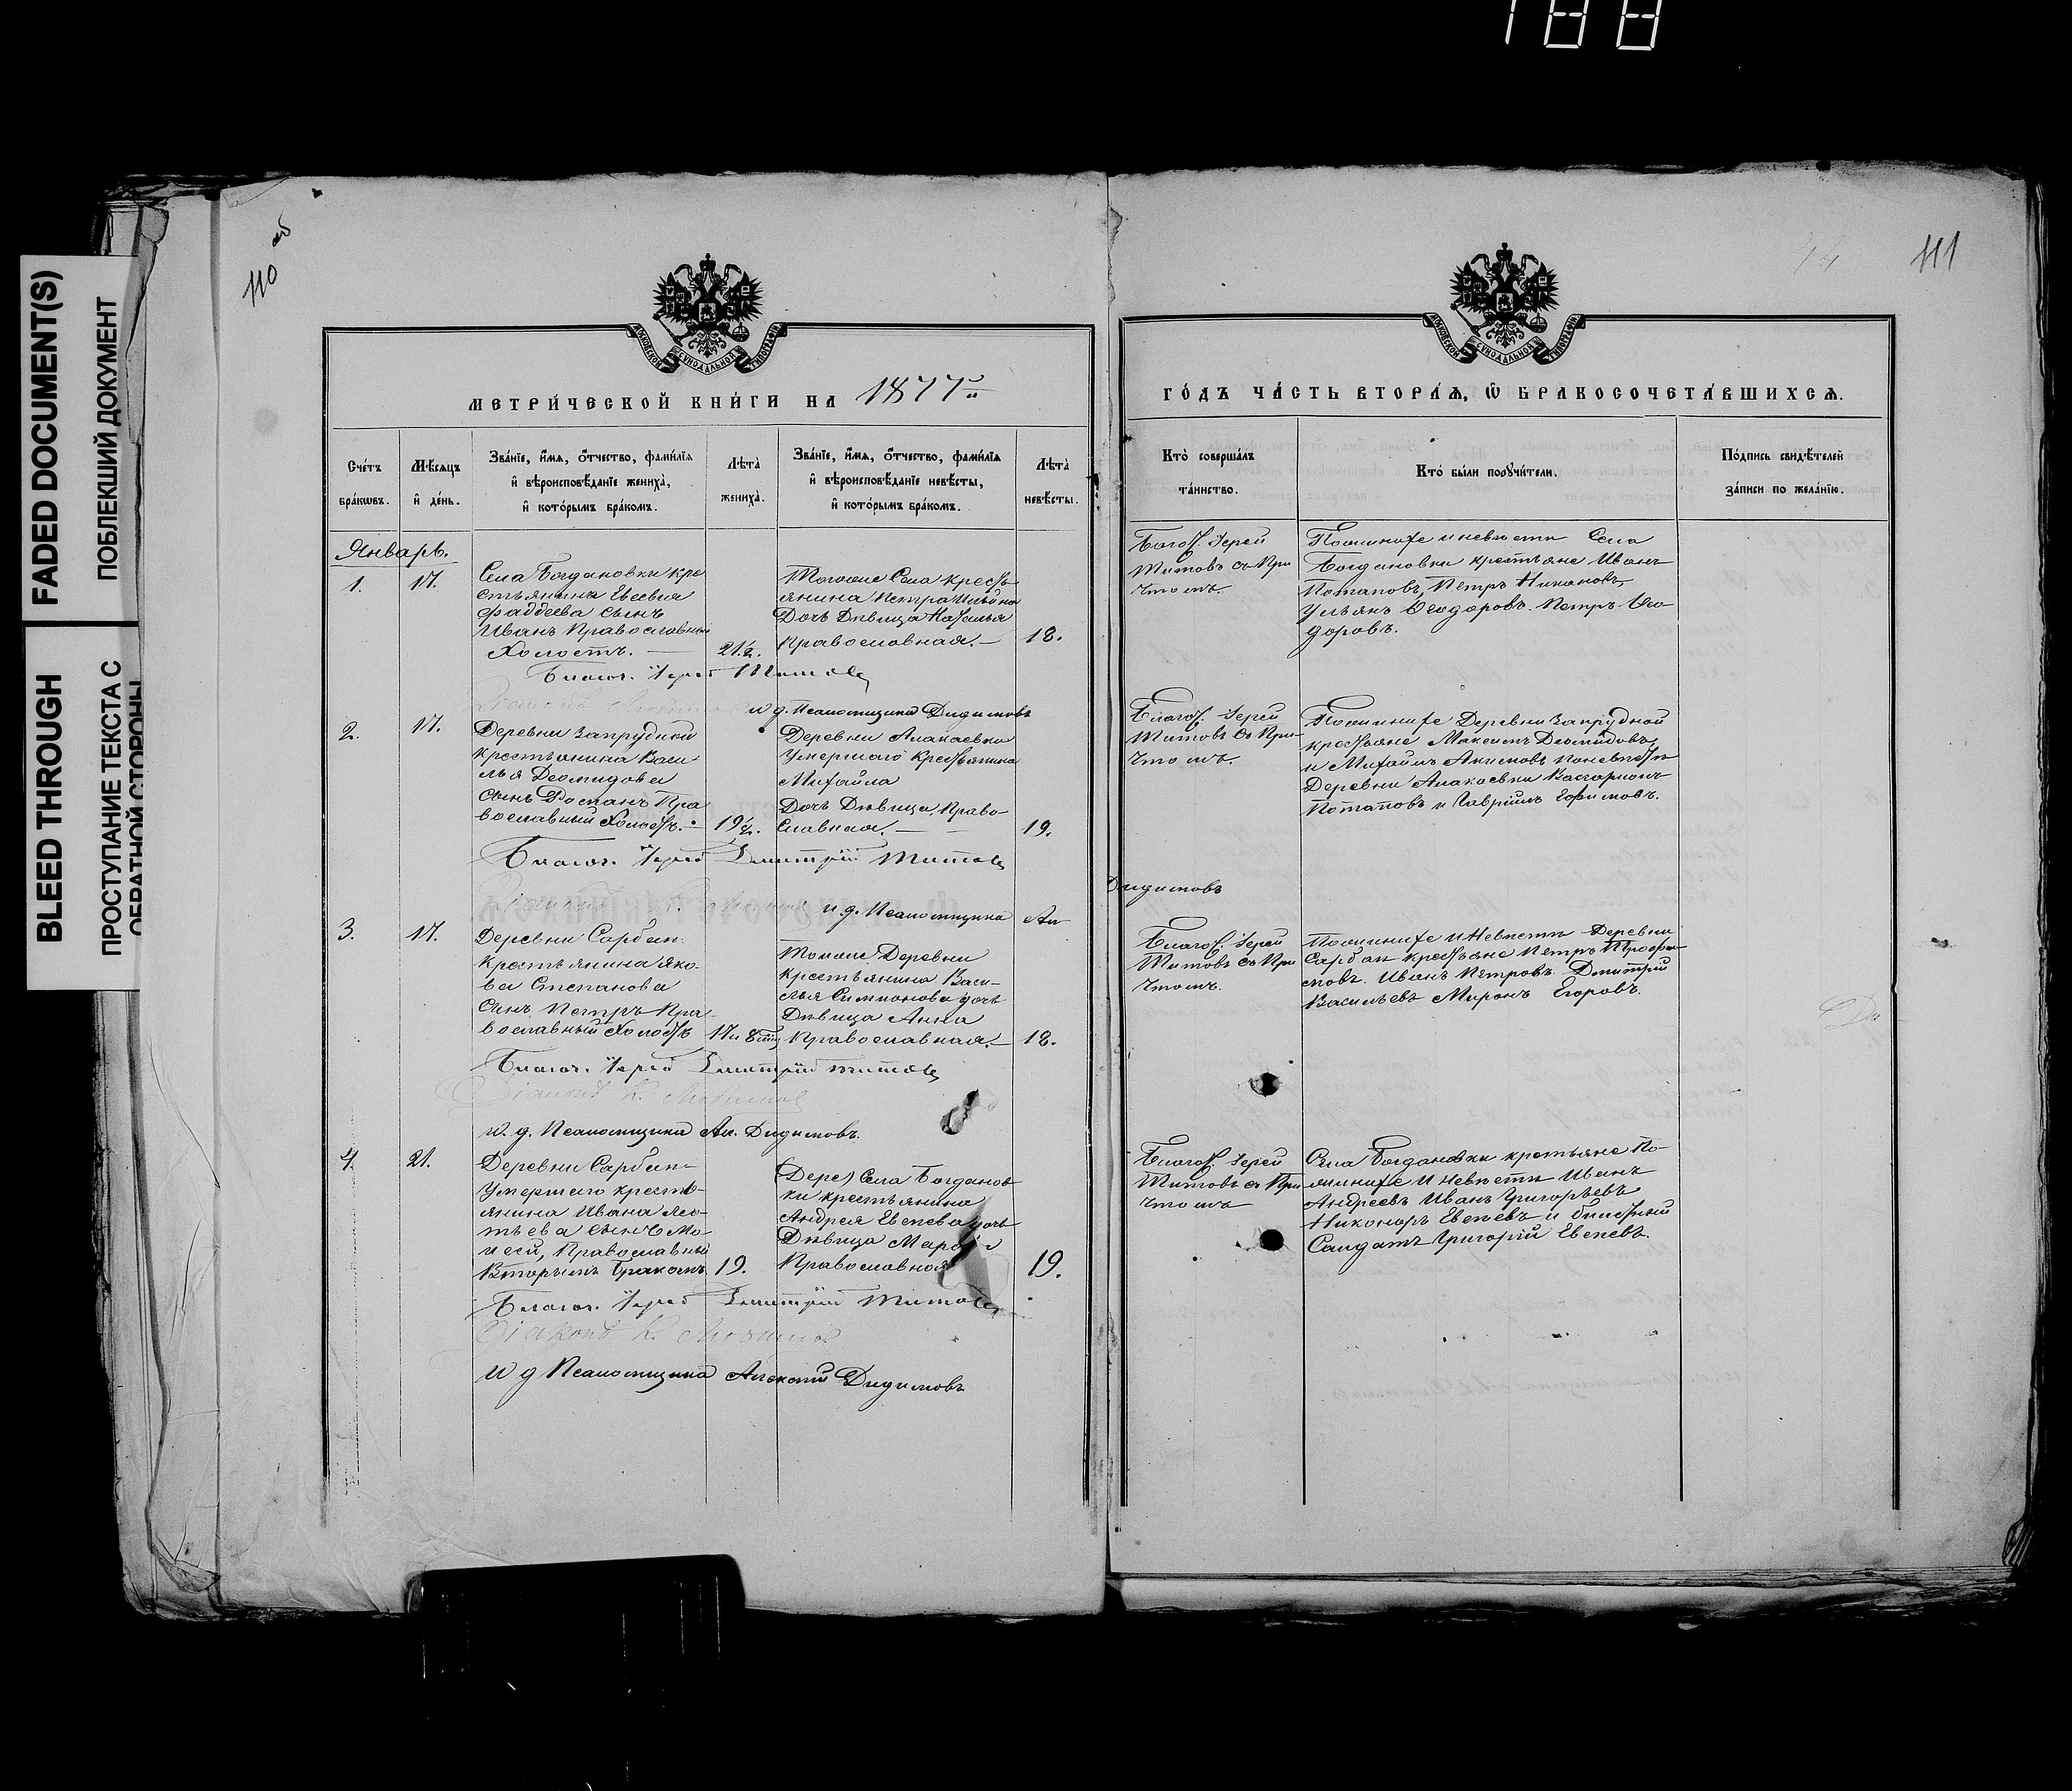 188
FADED DOCUMENT(S)
ПОБЛЕКШИЙ ДОКУМЕНТ
BLEED THROUGH
ПРОСТУПАНИЕ ТЕКСТА С
ОБРАТНОЙ СТОРОНЫ
110 об
111
МОСКОВСКОЙ СУНОДАЛЬНОЙ ТИПОГРАФІИ
МЕТРИ́ЧЕСКОЙ КНИ́ГИ НА 1877й
Сче́тъ бра́кѡвъ.
Мѣ́сяцъ и҆ де́нь.
Зва́нїе, и҆́мѧ, ѻ҆́тчество, фами́лїѧ
и҆ вѣроисповѣ́данїе жениха̀,
и҆ кото́рымъ бра́комъ.
Лѣта̀ жениха̀.
Зва́нїе, и҆́мѧ, ѻ҆́тчество, фами́лїѧ
и҆ вѣроисповѣ́данїе невѣ́сты,
и҆ кото́рымъ бра́комъ.
Лѣта̀ невѣ́сты.
Январь.
1.
17.
Села Богдановки кре
стьянина Евсевия
Фаддеева сынъ
Иванъ Православный
Холостъ. —
21½.
Тогоже Села кресть
янина Петра Ильина
Дочь Дѣвица Наталья
Православная. —
18.
Благоч. Іерей Титовъ
и д. Псаломщика Дидимовъ
2.
17.
Деревни Запрудной
крестьянина Васи
лья Деомидова
сынъ Романъ Пра
вославный Холостъ. —
19½.
Деревни Алакаевки
Умершаго Крестьянина
Михаила
Дочь Дѣвица, Право
славная. —
19.
Благоч. Іерей Димитрій Титовъ
и. д. Псаломщика Ал. Дидимовъ
3.
17.
Деревни Сарбай
Крестьянина Яко-
ва Степанова
Сынъ Петръ Пра-
вославный Холостъ
17 и 8 мц
Тойже Деревни
Крестьянина Васи-
лья Симионова дочь
Дѣвица Анна
Православная. —
18.
Благоч. Іерей Димитрій Титовъ
Діаконъ
и. д. Псаломщика Ал. Дидимовъ.
4.
21.
Деревни Сарбай
Умершаго кресть-
янина Ивана
сынъ Мо-
исей, Православный
Вторымъ бракомъ.
19.
(Дере) Села Богданов
ки крестьянина
Андрея дочь
Дѣвица
Православная
19.
Благоч. Іерей Димитрій Титовъ
Діаконъ
и д Псаломщика Алексѣй Дидимовъ
МОСКОВСКОЙ СУНОДАЛЬНОЙ ТИПОГРАФІИ
ГО́ДЪ ЧА́СТЬ ВТОРА́Ѧ, Ѽ БРАКОСОЧЕТА́ВШИХСѦ.
Кто̀ соверша́лъ та́инство.
Кто̀ бы́ли порꙋчи́тели.
По́дпись свидѣ́телей
за́писи по жела́нїю.
Благоч. Іерей
Титовъ съ При
чтомъ.
По женихе и невѣсти Села
Богдановки крестьяне Иванъ
Потаповъ, Петръ Никоновъ,
Ульянъ Ѳеодоровъ. Петръ Ѳео
доровъ.
Благоч. Іерей
Титовъ съ При-
чтомъ.
По женихе Деревни Запрудной
крестьяне Максимъ Деомидовъ,
и Михаилъ Акимовъ по невѣсти
Деревни Алакаевки
Потаповъ и Гаврiилъ Ефимовъ.
Благоч. Іерей
Титовъ съ При
чтомъ.
По женихе и Невѣсти Деревни
Сарбай Крестьяне Петръ Трофи-
мовъ. Иванъ Петровъ. Дмитрій
Васильевъ Миронъ Егоровъ.
Благоч. Іерей
Титовъ съ При
чтомъ
Села Богдановки крестьяне По-
женихе И Невѣсти Иванъ
Андреевъ Иванъ Григорьевъ
Никоноръ и билетный
Салдатъ Григорій